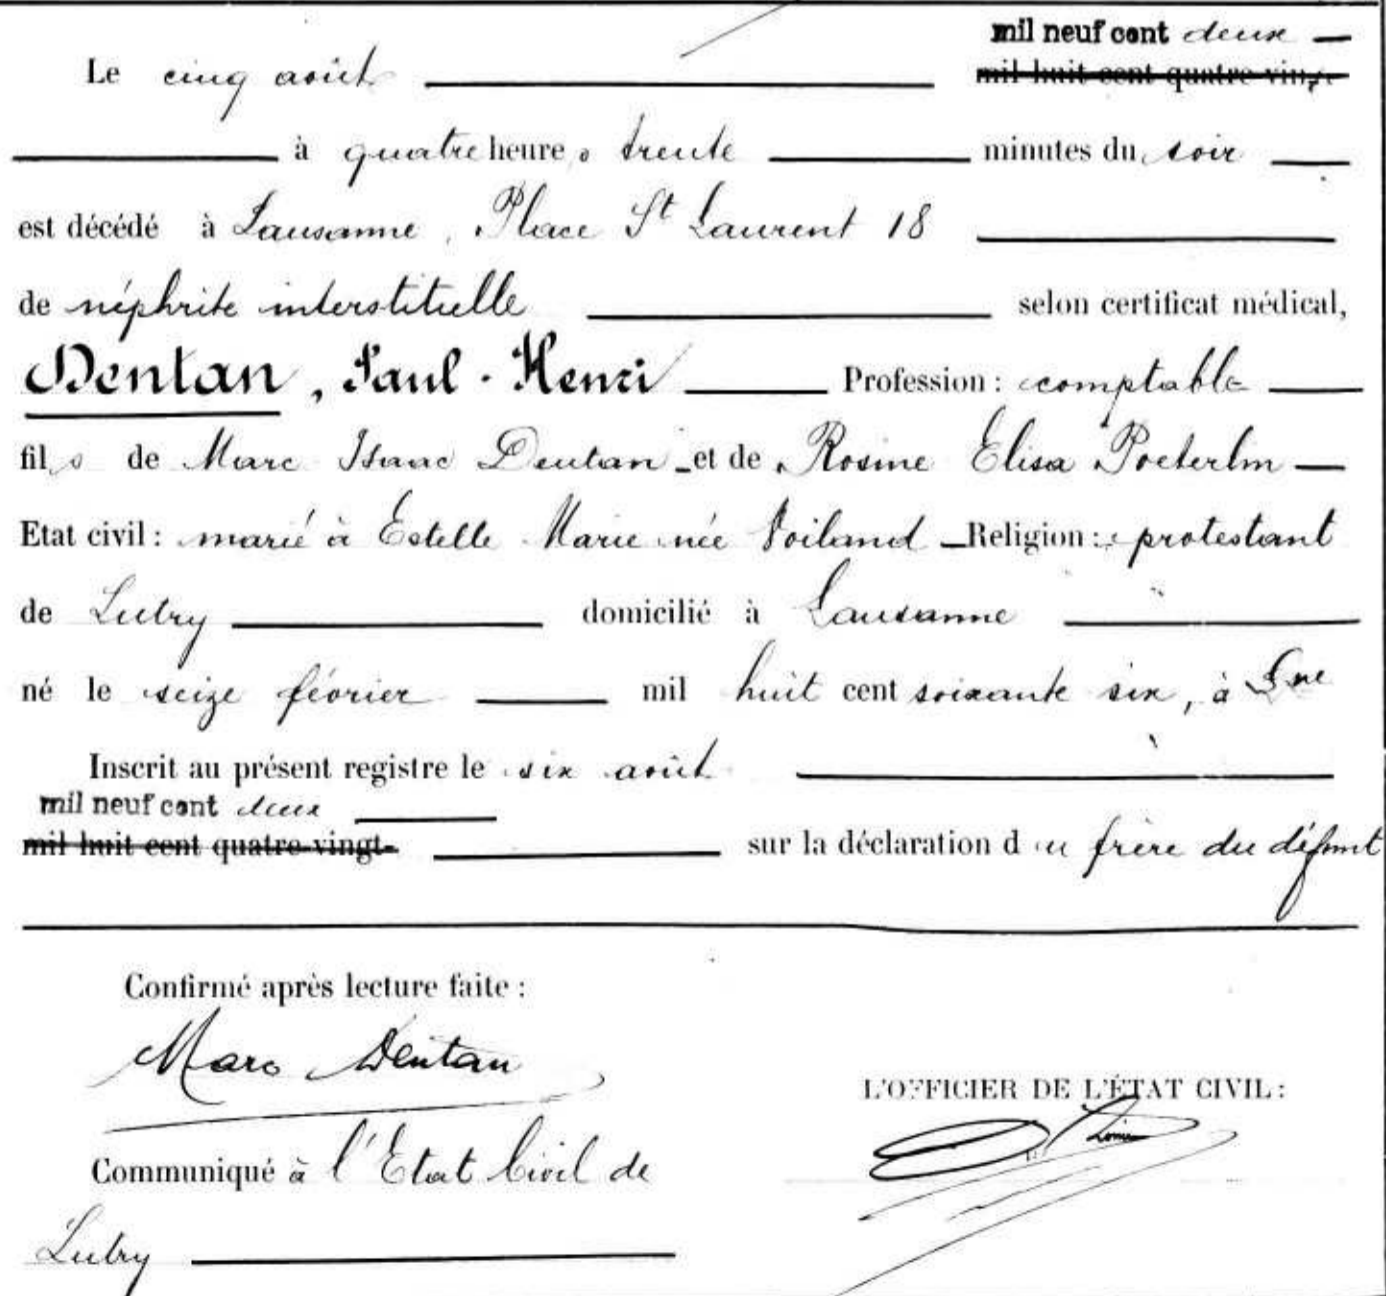 mil neuf cent deux
Le cinq août mil huit cent quatre-vingt
à quatre heures trente minutes du soir
est décédé à Lausanne, Place St Laurent 18
de néphrite interstitielle selon certificat médical,
Dentan, Paul-Henri Profession : comptable
fils de Marc Isaac Dentan et de Rosine Elisa
Etat civil : marié à Estelle Marie née Religion : protestant
de Lutry domicilié à Lausanne
né le seize février mil huit cent soixante six, à Lsne
Inscrit au présent registre le six août
mil neuf cent deux
mil huit cent quatre-vingt- sur la déclaration du frère du défunt
Confirmé après lecture faite :
Marc Dentan
L'OFFICIER DE L'ÉTAT CIVIL :
Communiqué à l'Etat Civil de
Lutry